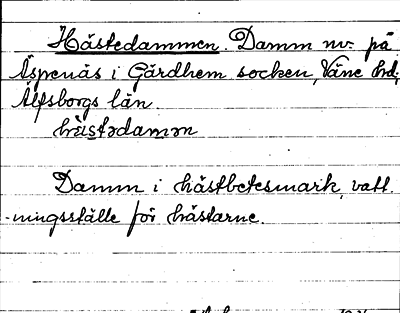 Hästedammen. Damm nv. på
Äspenäs i Gärdhem socken, Väne hd,
Älfsborgs län.
hästədamən
Damm i hästbetesmark, vatt-
ningsställe för hästarne.